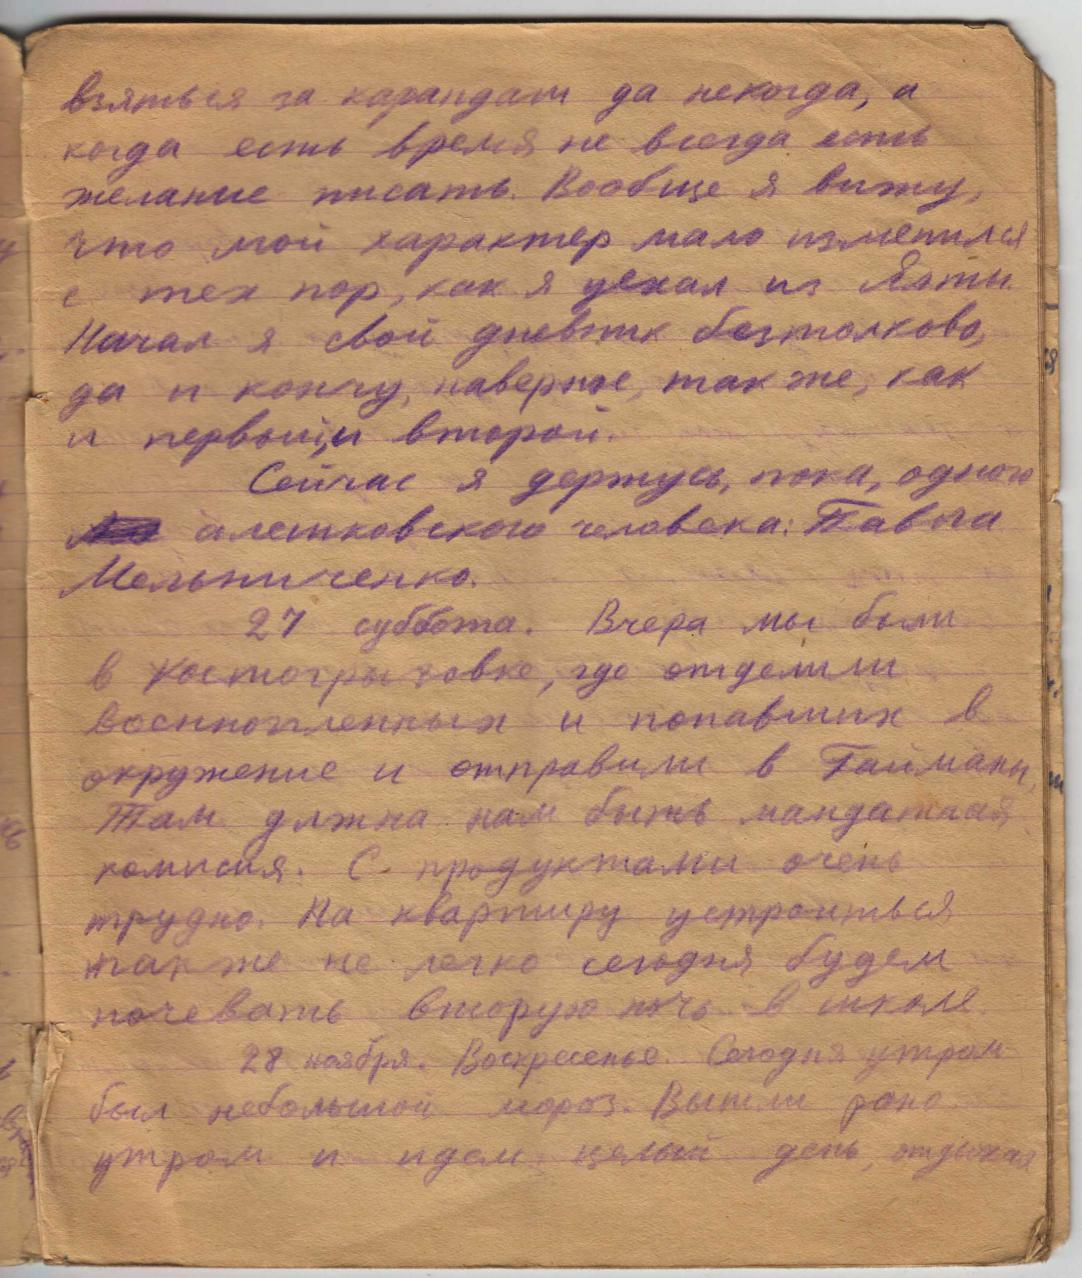 взяться за карандаш да некогда, а
когда есть время не всегда есть
желание писать. Вообще я вижу,
что мой характер мало изменился
с тех пор, как я уехал из Ялты.
Начал я свой дневник безтолково,
да и кончу, наверное, так же, как
и первый, и второй.
Сейчас я держусь, пока, одного
алешковского человека: Павла
Мельниченко.
27 суббота. Вчера мы были
в Костогрызовке, где отделили
военнопленных и попавших в
окружение и отправили в Гайманы,
Там должна нам быть мандатная
комисия. С продуктами очень
трудно. На квартиру устроиться
также не легко сегодня будем
ночевать вторую ночь в школе.
28 ноября. Воскресенье. Сегодня утром
был небольшой мороз. Вышли рано
утром и идем целый день, отдыхая